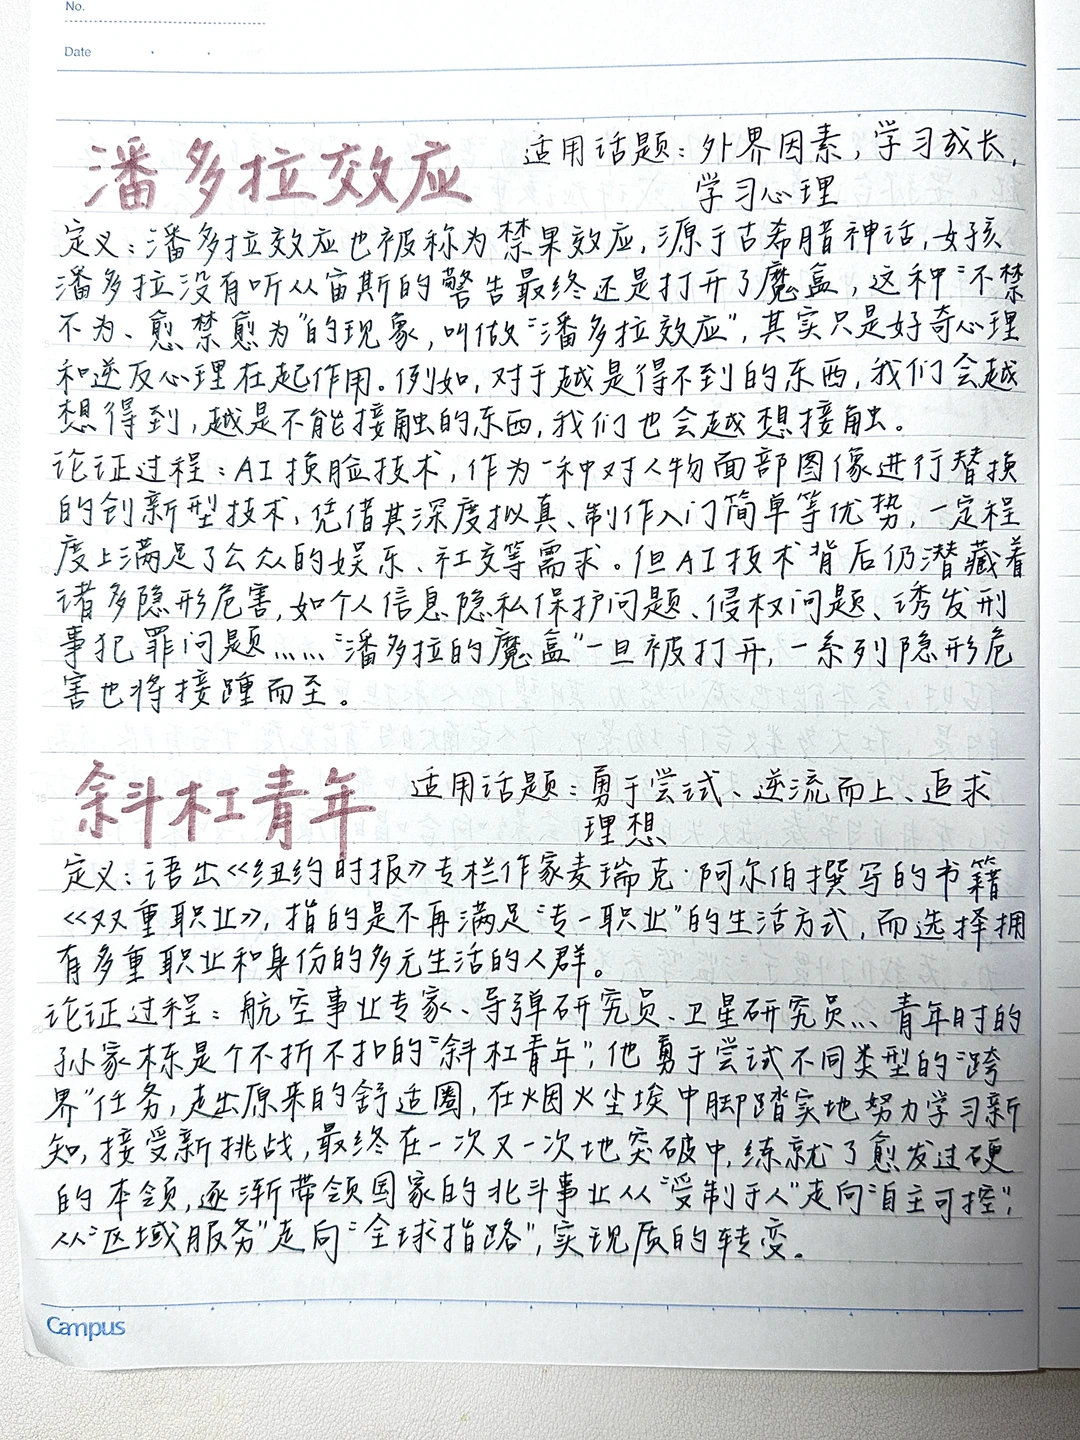 No.
Date
潘多拉效应 适用话题：外界因素，学习成长，
学习心理
定义：潘多拉效应也被称为禁果效应，源于古希腊神话，女孩
潘多拉没有听从宙斯的警告最终还是打开了魔盒，这种“不禁
不为、愈禁愈为”的现象，叫做“潘多拉效应”，其实只是好奇心理
和逆反心理在起作用。例如，对于越是得不到的东西，我们会越
想得到，越是不能接触的东西，我们也会越想接触。
论证过程：AI换脸技术，作为一种对人物面部图像进行替换
的创新型技术，凭借其深度拟真、制作入门简单等优势，一定程
度上满足了公众的娱乐、社交等需求。但AI技术背后仍潜藏着
诸多隐形危害，如个人信息隐私保护问题、侵权问题、诱发刑
事犯罪问题……“潘多拉的魔盒”一旦被打开，一系列隐形危
害也将接踵而至。
斜杠青年 适用话题：勇于尝试、逆流而上、追求
理想
定义：语出《纽约时报》专栏作家麦瑞克·阿尔伯撰写的书籍
《双重职业》，指的是不再满足“专一职业”的生活方式，而选择拥
有多重职业和身份的多元生活的人群。
论证过程：航空事业专家、导弹研究员、卫星研究员…青年时的
孙家栋是个不折不扣的“斜杠青年”，他勇于尝试不同类型的“跨
界”任务，走出原来的舒适圈，在烟火尘埃中脚踏实地努力学习新
知，接受新挑战，最终在一次又一次地突破中，练就了愈发过硬
的本领，逐渐带领国家的北斗事业从“受制于人”走向“自主可控”，
从“区域服务”走向“全球指路”，实现质的转变。
Campus